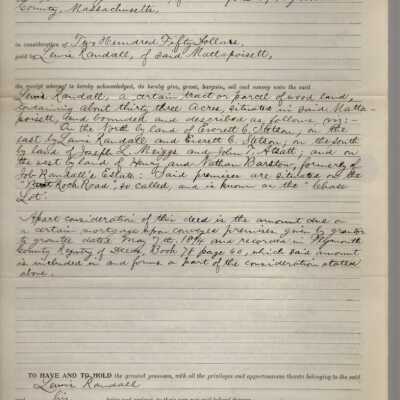 County, Massachusetts,
in consideration of Two Hundred Fifty Dollars,
paid by Lewis Randall, of said Mattapoisett,
the receipt whereof is hereby acknowledged, do hereby give, grant, bargain, sell and convey unto the said
Lewis Randall, a certain tract or parcel of wood land,
containing about thirty three Acres, situated in said Matta-
poisett, and bounded and described as follows, viz:-
On the North by land of Everett C. Stetson, on the
east by Lewis Randall and Everett C. Stetson, on the south
by land of Joseph L. Meiggs and John T. Atsatt; and on
the west by land of Henry and Nathan Barstow, formerly of
Job Randall's Estate: Said premises are situated on the
Rock Road, so called, and is known as the "Chase
Lot".
A part consideration of this deed is the amount due on
a certain mortgage upon conveyed premises given by grantor
to grantee dated May 7th, 1894 and recorded in Plymouth
County Registry of Deeds, Book page 60, which said amount
is included in and forms a part of the consideration stated
above.
TO HAVE AND TO HOLD the granted premises, with all the privileges and appurtenances thereto belonging to the said
Lewis Randall
and his